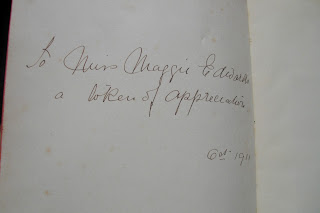 To Miss Maggie Edwards
a token of appreciation.